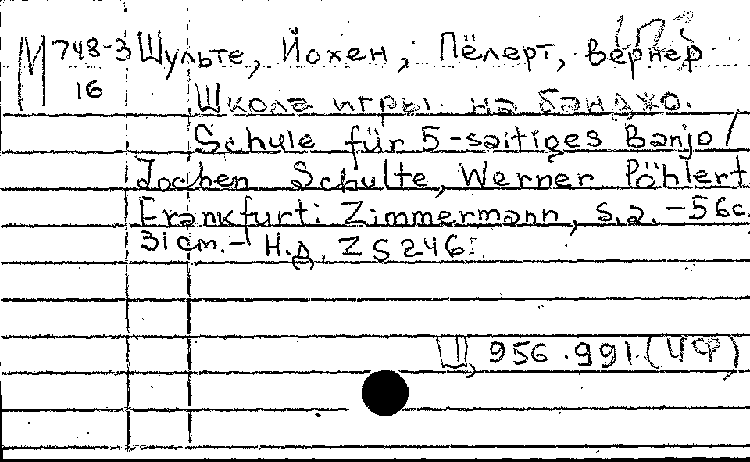 М 748-3 Шульте, Йохен; Пёлерт, Вернер
16
Школа игры на банджо.
Schule für 5-saitiges Banjo /
Jochen Schulte, Werner Pöhlert
Frankfurt: Zimmermann, s.a. - 56c.
31 cm. - Н.Д. ZS 246.
Ш 956.991 (ЧФ)